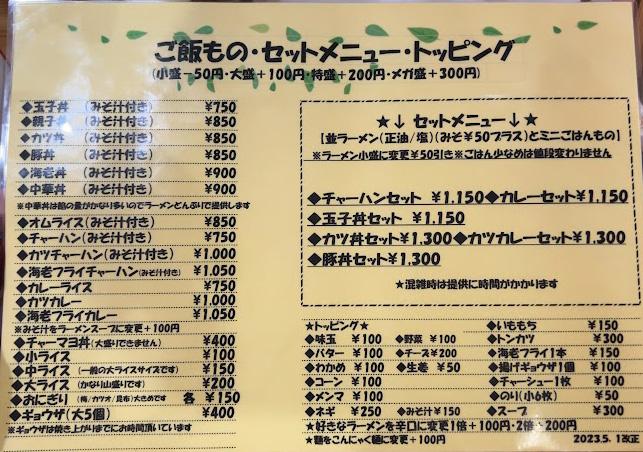 ご飯もの・セットメニュー・トッピング
(小盛－50円・大盛＋100円・特盛＋200円・メガ盛＋300円)
◆玉子丼 (みそ汁付き) ¥750
◆親子丼 (みそ汁付き) ¥850
◆カツ丼 (みそ汁付き) ¥850
◆豚丼 (みそ汁付き) ¥850
◆海老丼 (みそ汁付き) ¥900
◆中華丼 (みそ汁付き) ¥900
※中華丼は餡の量がかなり多いのでラーメンどんぶりで提供します
◆オムライス(みそ汁付き) ¥850
◆チャーハン(みそ汁付き) ¥750
◆カツチャーハン(みそ汁付き) ¥1.000
◆海老フライチャーハン(みそ汁付き) ¥1.050
◆カレーライス ¥750
◆カツカレー ¥1.000
◆海老フライカレー ¥1.050
※みそ汁をラーメンスープに変更＋100円
◆チャーマヨ丼(大盛りできません) ¥400
◆小ライス ¥100
◆中ライス (一般の大ライスサイズです) ¥150
◆大ライス (かなり山盛りです) ¥200
◆おにぎり (梅/カツオ/昆布)大きめです 各 ¥150
◆ギョウザ(大5個) ¥400
※ギョウザは焼き上がりまでにお時間頂いています
★↓ セットメニュー↓★
【並ラーメン(正油/塩)(みそ¥50プラス)とミニごはんもの】
※ラーメン小盛に変更¥50引き※ごはん少なめは値段変わりません
◆チャーハンセット ¥1.150◆カレーセット¥1.150
◆玉子丼セット ¥1.150
◆カツ丼セット¥1.300◆カツカレーセット¥1.300
◆豚丼セット¥1.300
★混雑時は提供に時間がかかります
★トッピング★
◆味玉 ¥100 ◆野菜 ¥100
◆バター ¥100 ◆チーズ¥200
◆わかめ ¥100 ◆生姜 ¥50
◆コーン ¥100
◆メンマ ¥100
◆ネギ ¥250 ◆みそ汁¥150
◆いももち ¥150
◆トンカツ ¥300
◆海老フライ1本 ¥150
◆揚げギョウザ1個 ¥100
◆チャーシュー1枚 ¥100
◆のり(小6枚) ¥50
◆スープ ¥300
★好きなラーメンを辛口に変更1倍＋100円・2倍＋200円
★麺をこんにゃく麺に変更＋100円
2023.5.1改正